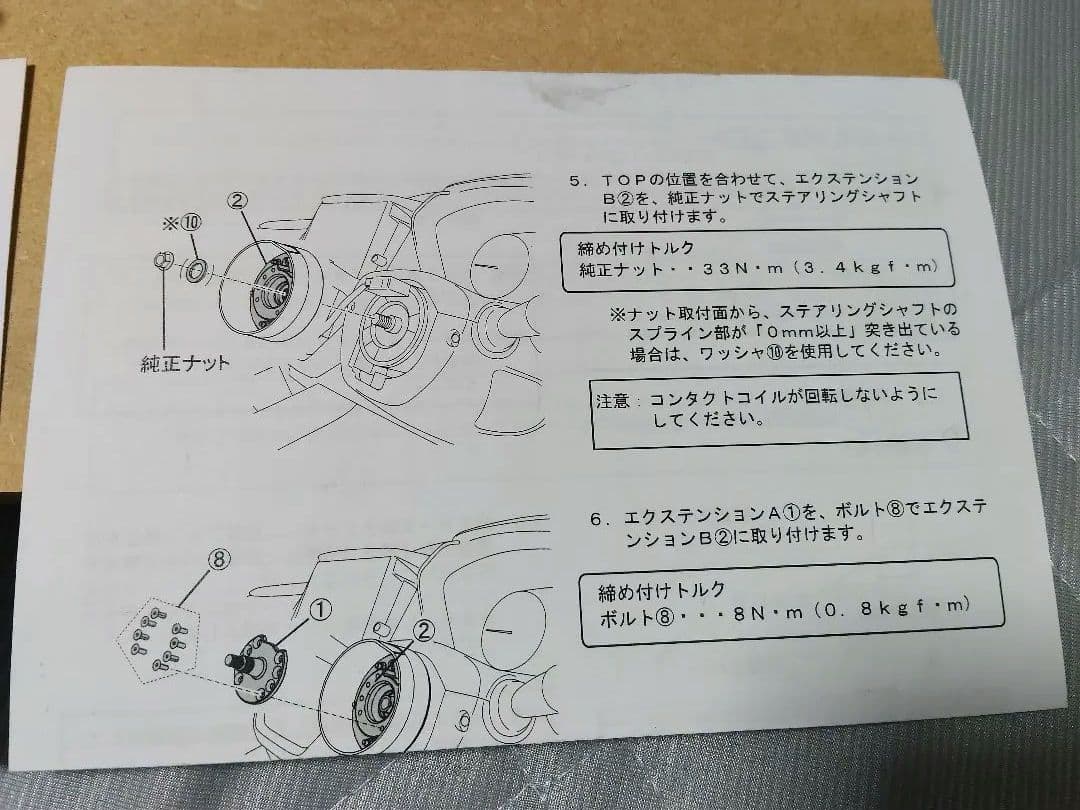 ②
※⑩
純正ナット
５．ＴＯＰの位置を合わせて、エクステンション
Ｂ②を、純正ナットでステアリングシャフト
に取り付けます。
締め付けトルク
純正ナット・・３３Ｎ・ｍ（３．４ｋｇｆ・ｍ）
※ナット取付面から、ステアリングシャフトの
スプライン部が「０ｍｍ以上」突き出ている
場合は、ワッシャ⑩を使用してください。
注意：コンタクトコイルが回転しないように
してください。
⑧
①
②
６．エクステンションＡ①を、ボルト⑧でエクステ
ンションＢ②に取り付けます。
締め付けトルク
ボルト⑧・・・８Ｎ・ｍ（０．８ｋｇｆ・ｍ）